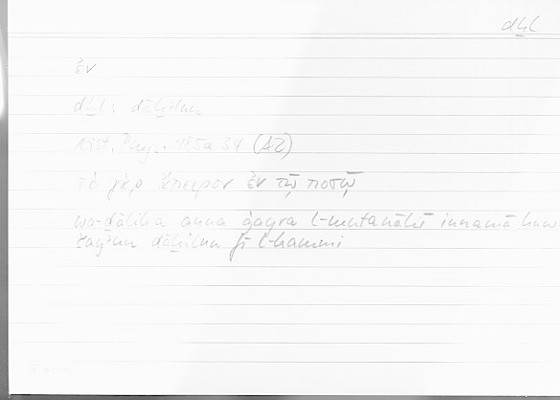 dḫl
ἐν
dḫl: dāḫilun
Arist. Phys. 185a 34 (AZ)
τὸ γὰρ ἄπειρον ἐν τῷ ποσῷ
wa-ḏālika anna ġayra l-mutanāhī innamā huwa
šayʾun dāḫilun fī l-kammi